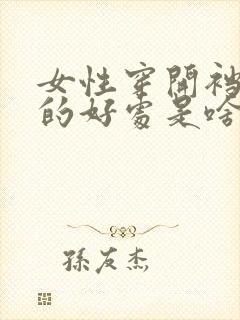 女性穿開襠
的好處是啥
孫友杰